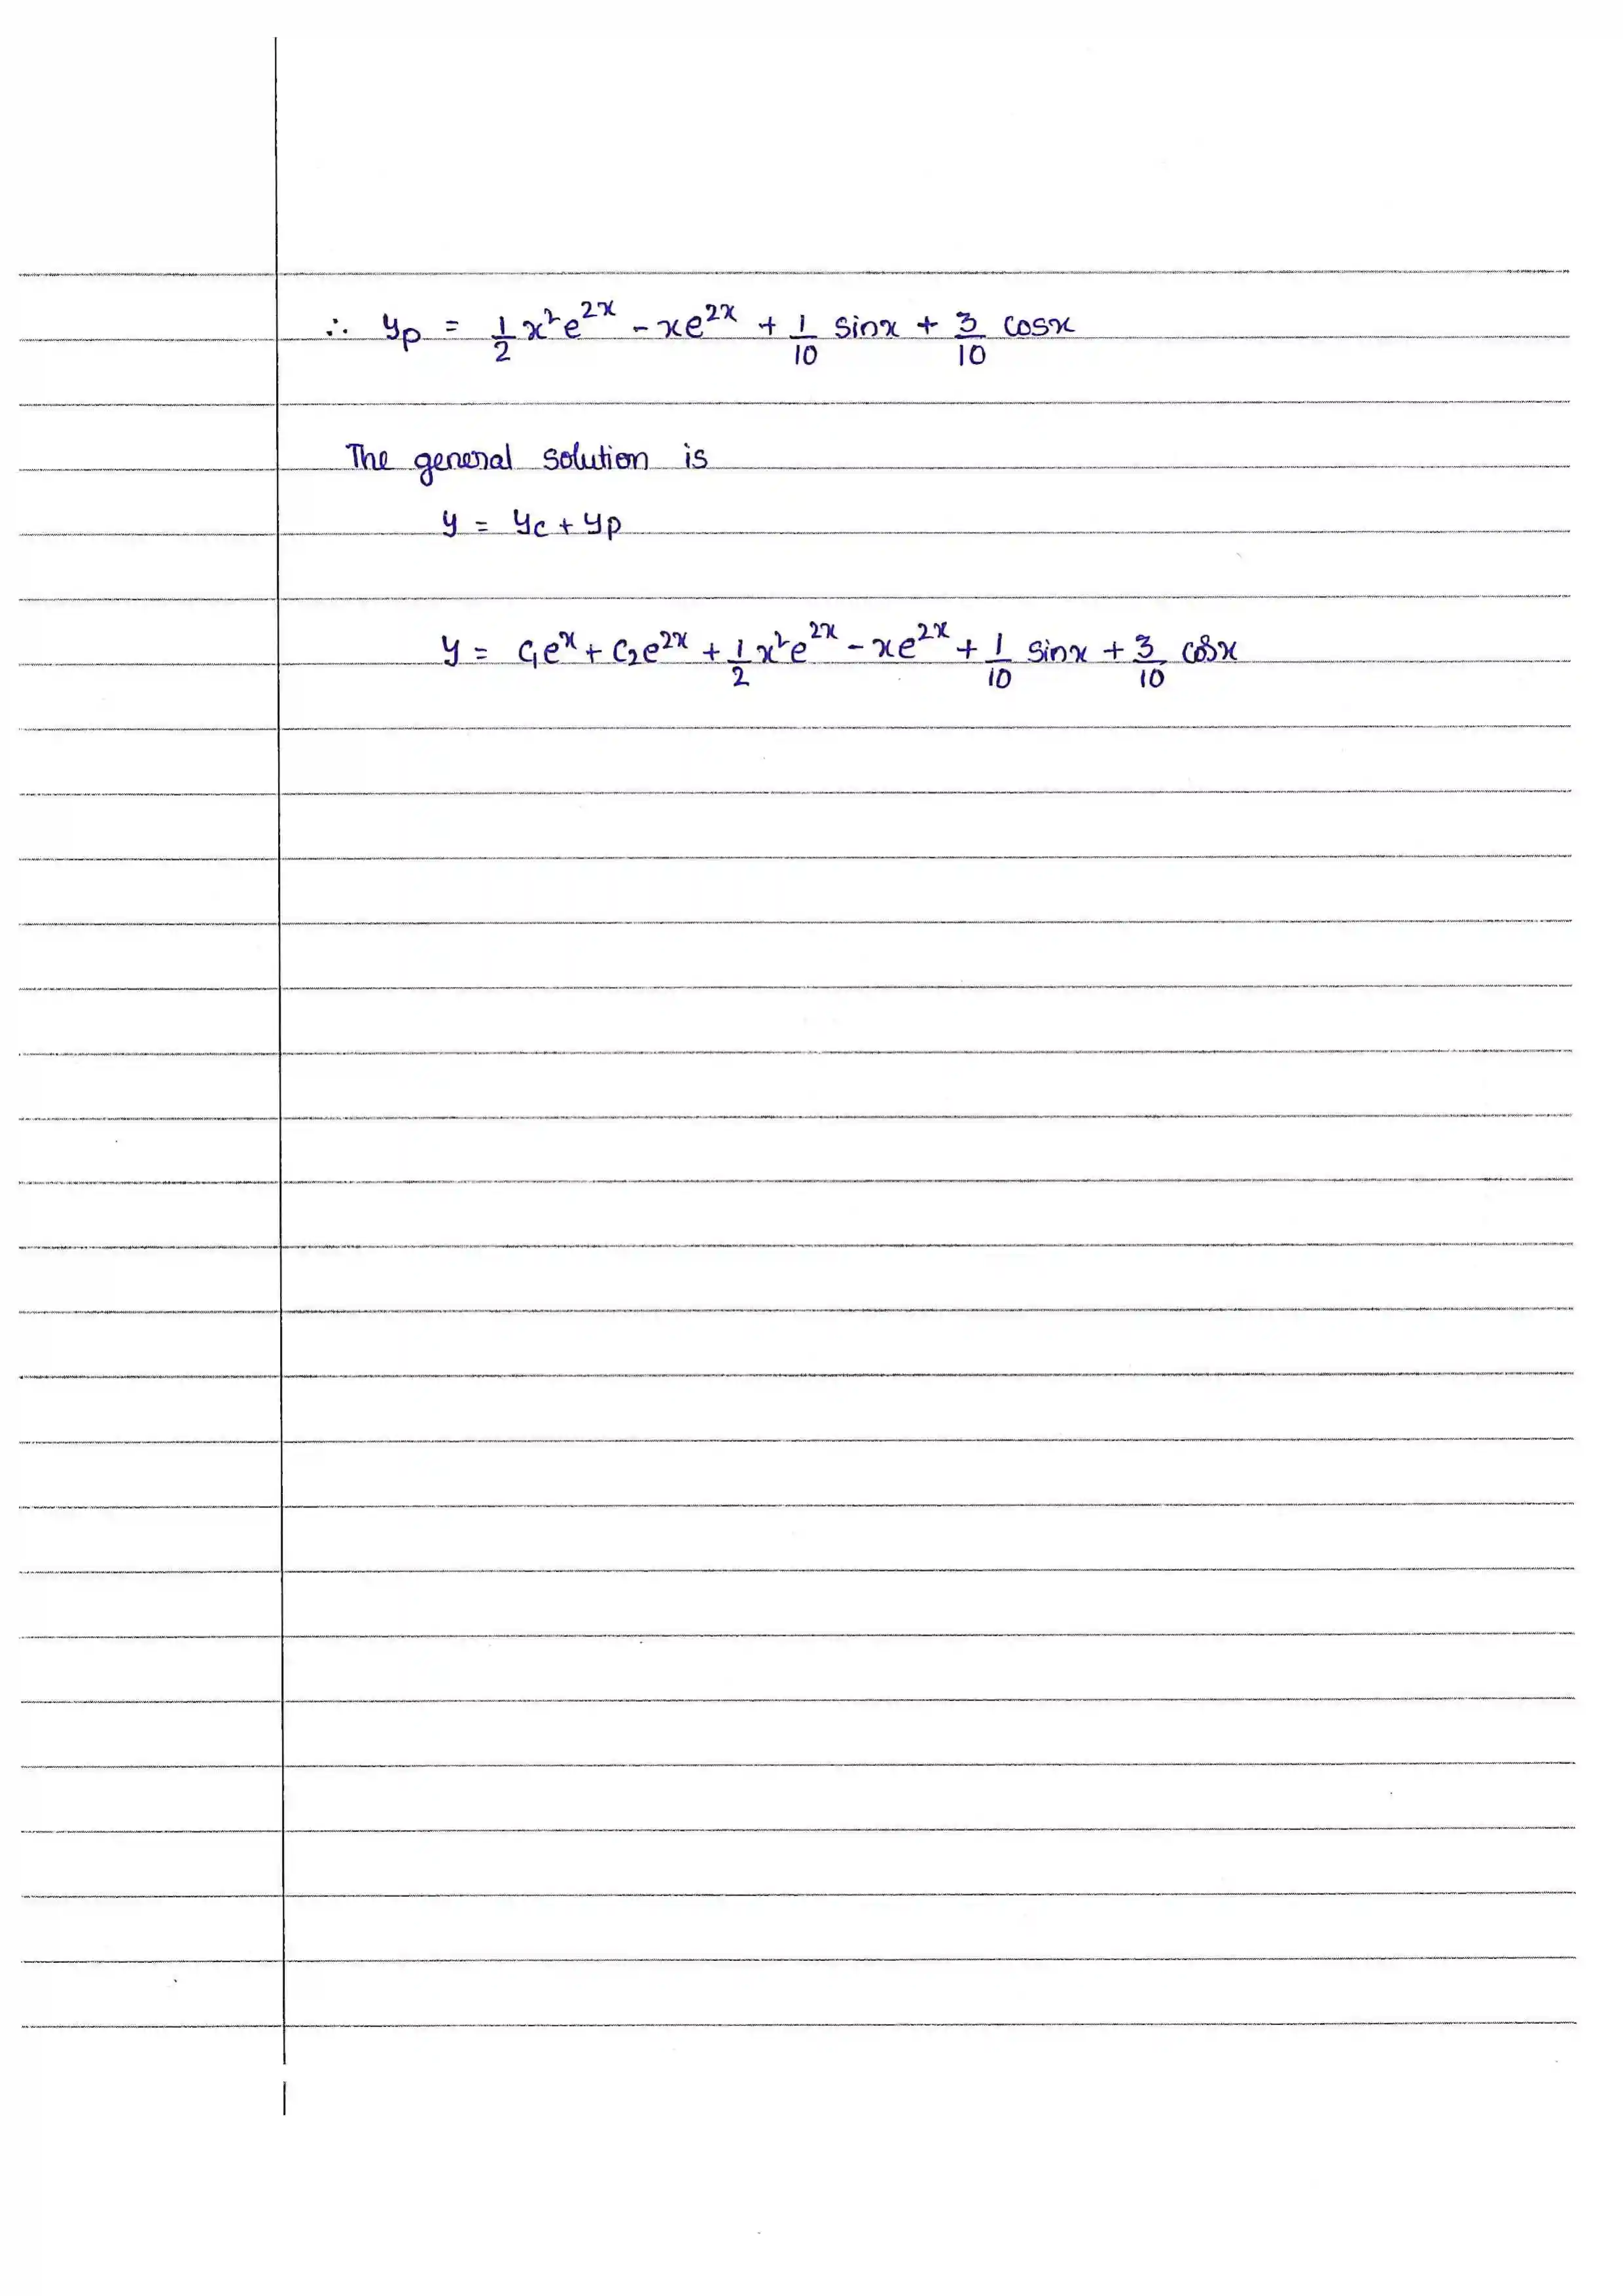 ∴ yp = 1/2 x²e^2x - xe^2x + 1/10 sinx + 3/10 cosx
The general solution is
y = yc + yp
y = c₁e^x + c₂e^2x + 1/2 x²e^2x - xe^2x + 1/10 sinx + 3/10 cosx